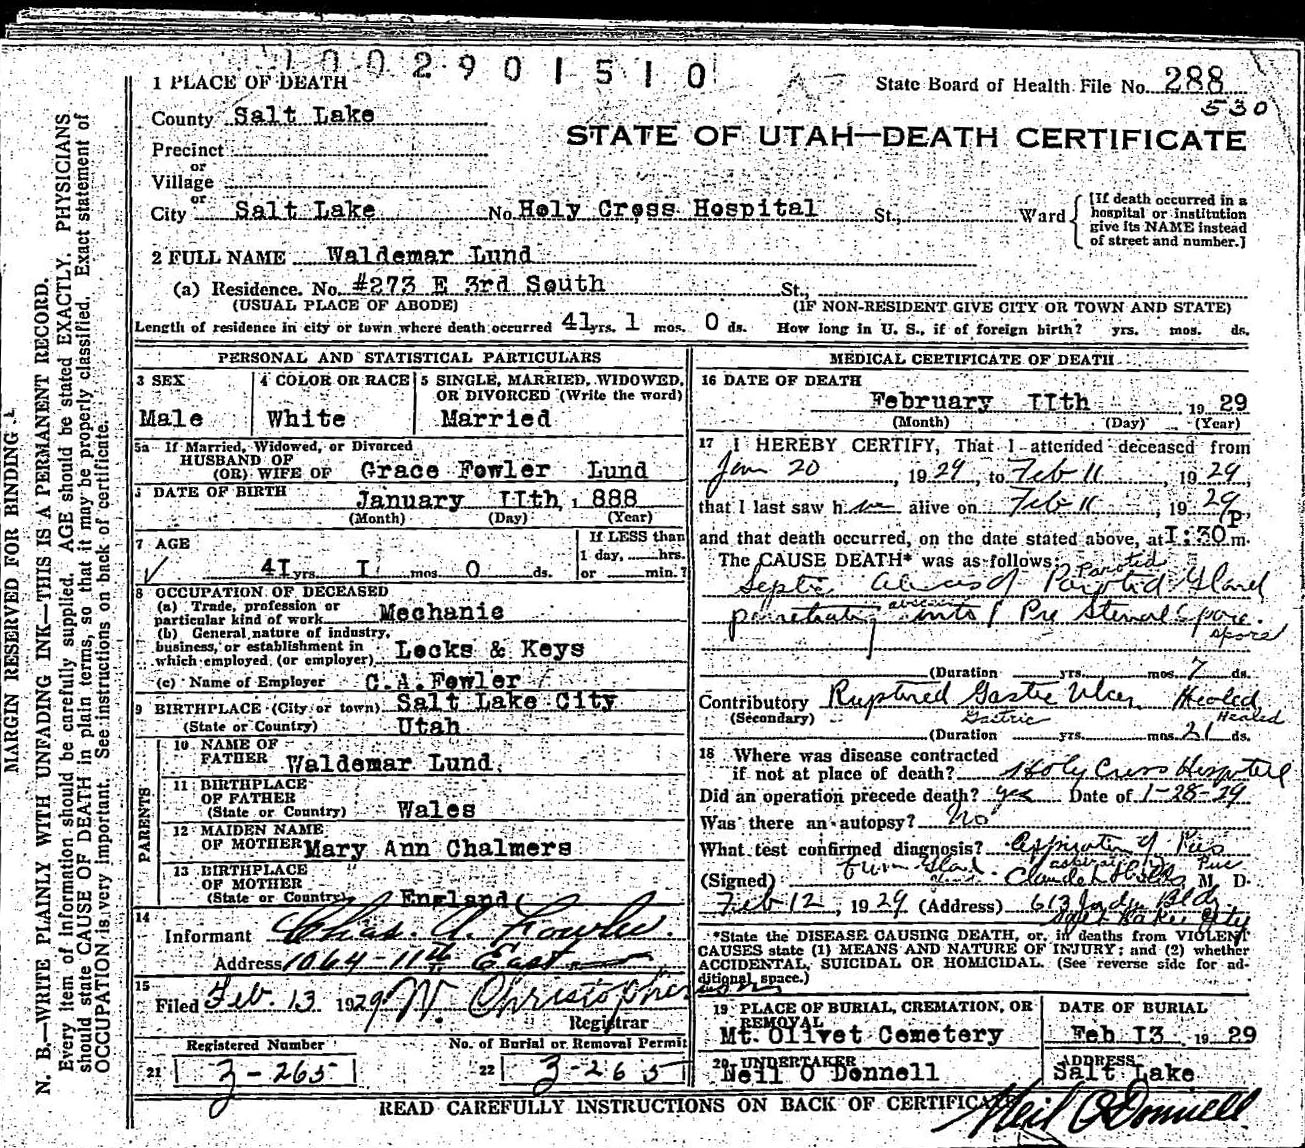 1002901510
1 PLACE OF DEATH
State Board of Health File No. 288
530
County Salt Lake
STATE OF UTAH—DEATH CERTIFICATE
Precinct
or
Village
or
City Salt Lake No. Holy Cross Hospital St., Ward
[If death occurred in a
hospital or institution
give its NAME instead
of street and number.]
2 FULL NAME Waldemar Lund
(a) Residence. No. #273 E 3rd South St.,
(USUAL PLACE OF ABODE) (IF NON-RESIDENT GIVE CITY OR TOWN AND STATE)
Length of residence in city or town where death occurred 41 yrs. 1 mos. 0 ds. How long in U. S., if of foreign birth? yrs. mos. ds.
PERSONAL AND STATISTICAL PARTICULARS
3 SEX
Male
4 COLOR OR RACE
White
5 SINGLE, MARRIED, WIDOWED,
OR DIVORCED (Write the word)
Married
5a If Married, Widowed, or Divorced
HUSBAND OF
(OR) WIFE OF Grace Fowler Lund
DATE OF BIRTH
January IIth, 888
(Month) (Day) (Year)
7 AGE
4I yrs. I mos. 0 ds.
If LESS than
1 day, hrs.
or min.?
8 OCCUPATION OF DECEASED
(a) Trade, profession or
particular kind of work Mechanic
(b) General nature of industry,
business, or establishment in
which employed (or employer) Locks & Keys
(c) Name of Employer C.A. Fowler
9 BIRTHPLACE (City or town) Salt Lake City
(State or Country) Utah
PARENTS
10 NAME OF
FATHER Waldemar Lund.
11 BIRTHPLACE
OF FATHER
(State or Country) Wales
12 MAIDEN NAME
OF MOTHER Mary Ann Chalmers
13 BIRTHPLACE
OF MOTHER
(State or Country) England
14
Informant Chas. A. Fowler
Address 1064-11th East
15
Filed Feb. 13 1929 W. Christopherson
Registrar
Registered Number
21 3-265
No. of Burial or Removal Permit
22 3-265
MEDICAL CERTIFICATE OF DEATH
16 DATE OF DEATH
February IIth 19 29
(Month) (Day) (Year)
17 I HEREBY CERTIFY, That I attended deceased from
Jan 20, 1929, to Feb 11, 1929,
that I last saw h im alive on Feb 11, 1929,
and that death occurred, on the date stated above, at I:30 P m.
The CAUSE DEATH* was as follows:
Parotid
Septic of Parotid Gland
abscess
penetrating into Pre Sternal space.
(Duration yrs. mos. 7 ds.
Contributory Ruptured Gastric Ulcer Healed
(Secondary) Gastric Healed
(Duration yrs. mos. 21 ds.
18 Where was disease contracted
if not at place of death? Holy Cross Hospital
Did an operation precede death? yes Date of 1-28-29
Was there an autopsy? No
What test confirmed diagnosis? Aspiration of Pus
from Gland.
(Signed) M. D.
Feb 12, 1929 (Address) 613 Bldg
Salt Lake City
*State the DISEASE CAUSING DEATH, or, in deaths from VIOLENT
CAUSES state (1) MEANS AND NATURE OF INJURY; and (2) whether
ACCIDENTAL, SUICIDAL OR HOMICIDAL. (See reverse side for ad-
ditional space.)
19 PLACE OF BURIAL, CREMATION, OR
REMOVAL
Mt. Olivet Cemetery
DATE OF BURIAL
Feb I3 19 29
20 UNDERTAKER
Neil O Donnell
ADDRESS
Salt Lake
READ CAREFULLY INSTRUCTIONS ON BACK OF CERTIFICATE
Neil O'Donnell
MARGIN RESERVED FOR BINDING
N. B.—WRITE PLAINLY WITH UNFADING INK—THIS IS A PERMANENT RECORD.
Every item of information should be carefully supplied. AGE should be stated EXACTLY. PHYSICIANS
should state CAUSE OF DEATH in plain terms, so that it may be properly classified. Exact statement of
OCCUPATION is very important. See instructions on back of certificate.